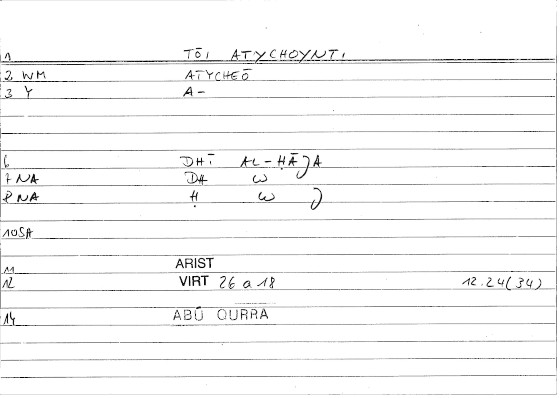 1 TŌI ATYCHOYNTI
2 WM ATYCHEŌ
3 Y A-
6 DHĪ AL-ḤĀJA
7 NA DH W
8 NA Ḥ W J
10 SA
11 ARIST
12 VIRT 26 a 18 12.24(34)
14 ABŪ QURRA